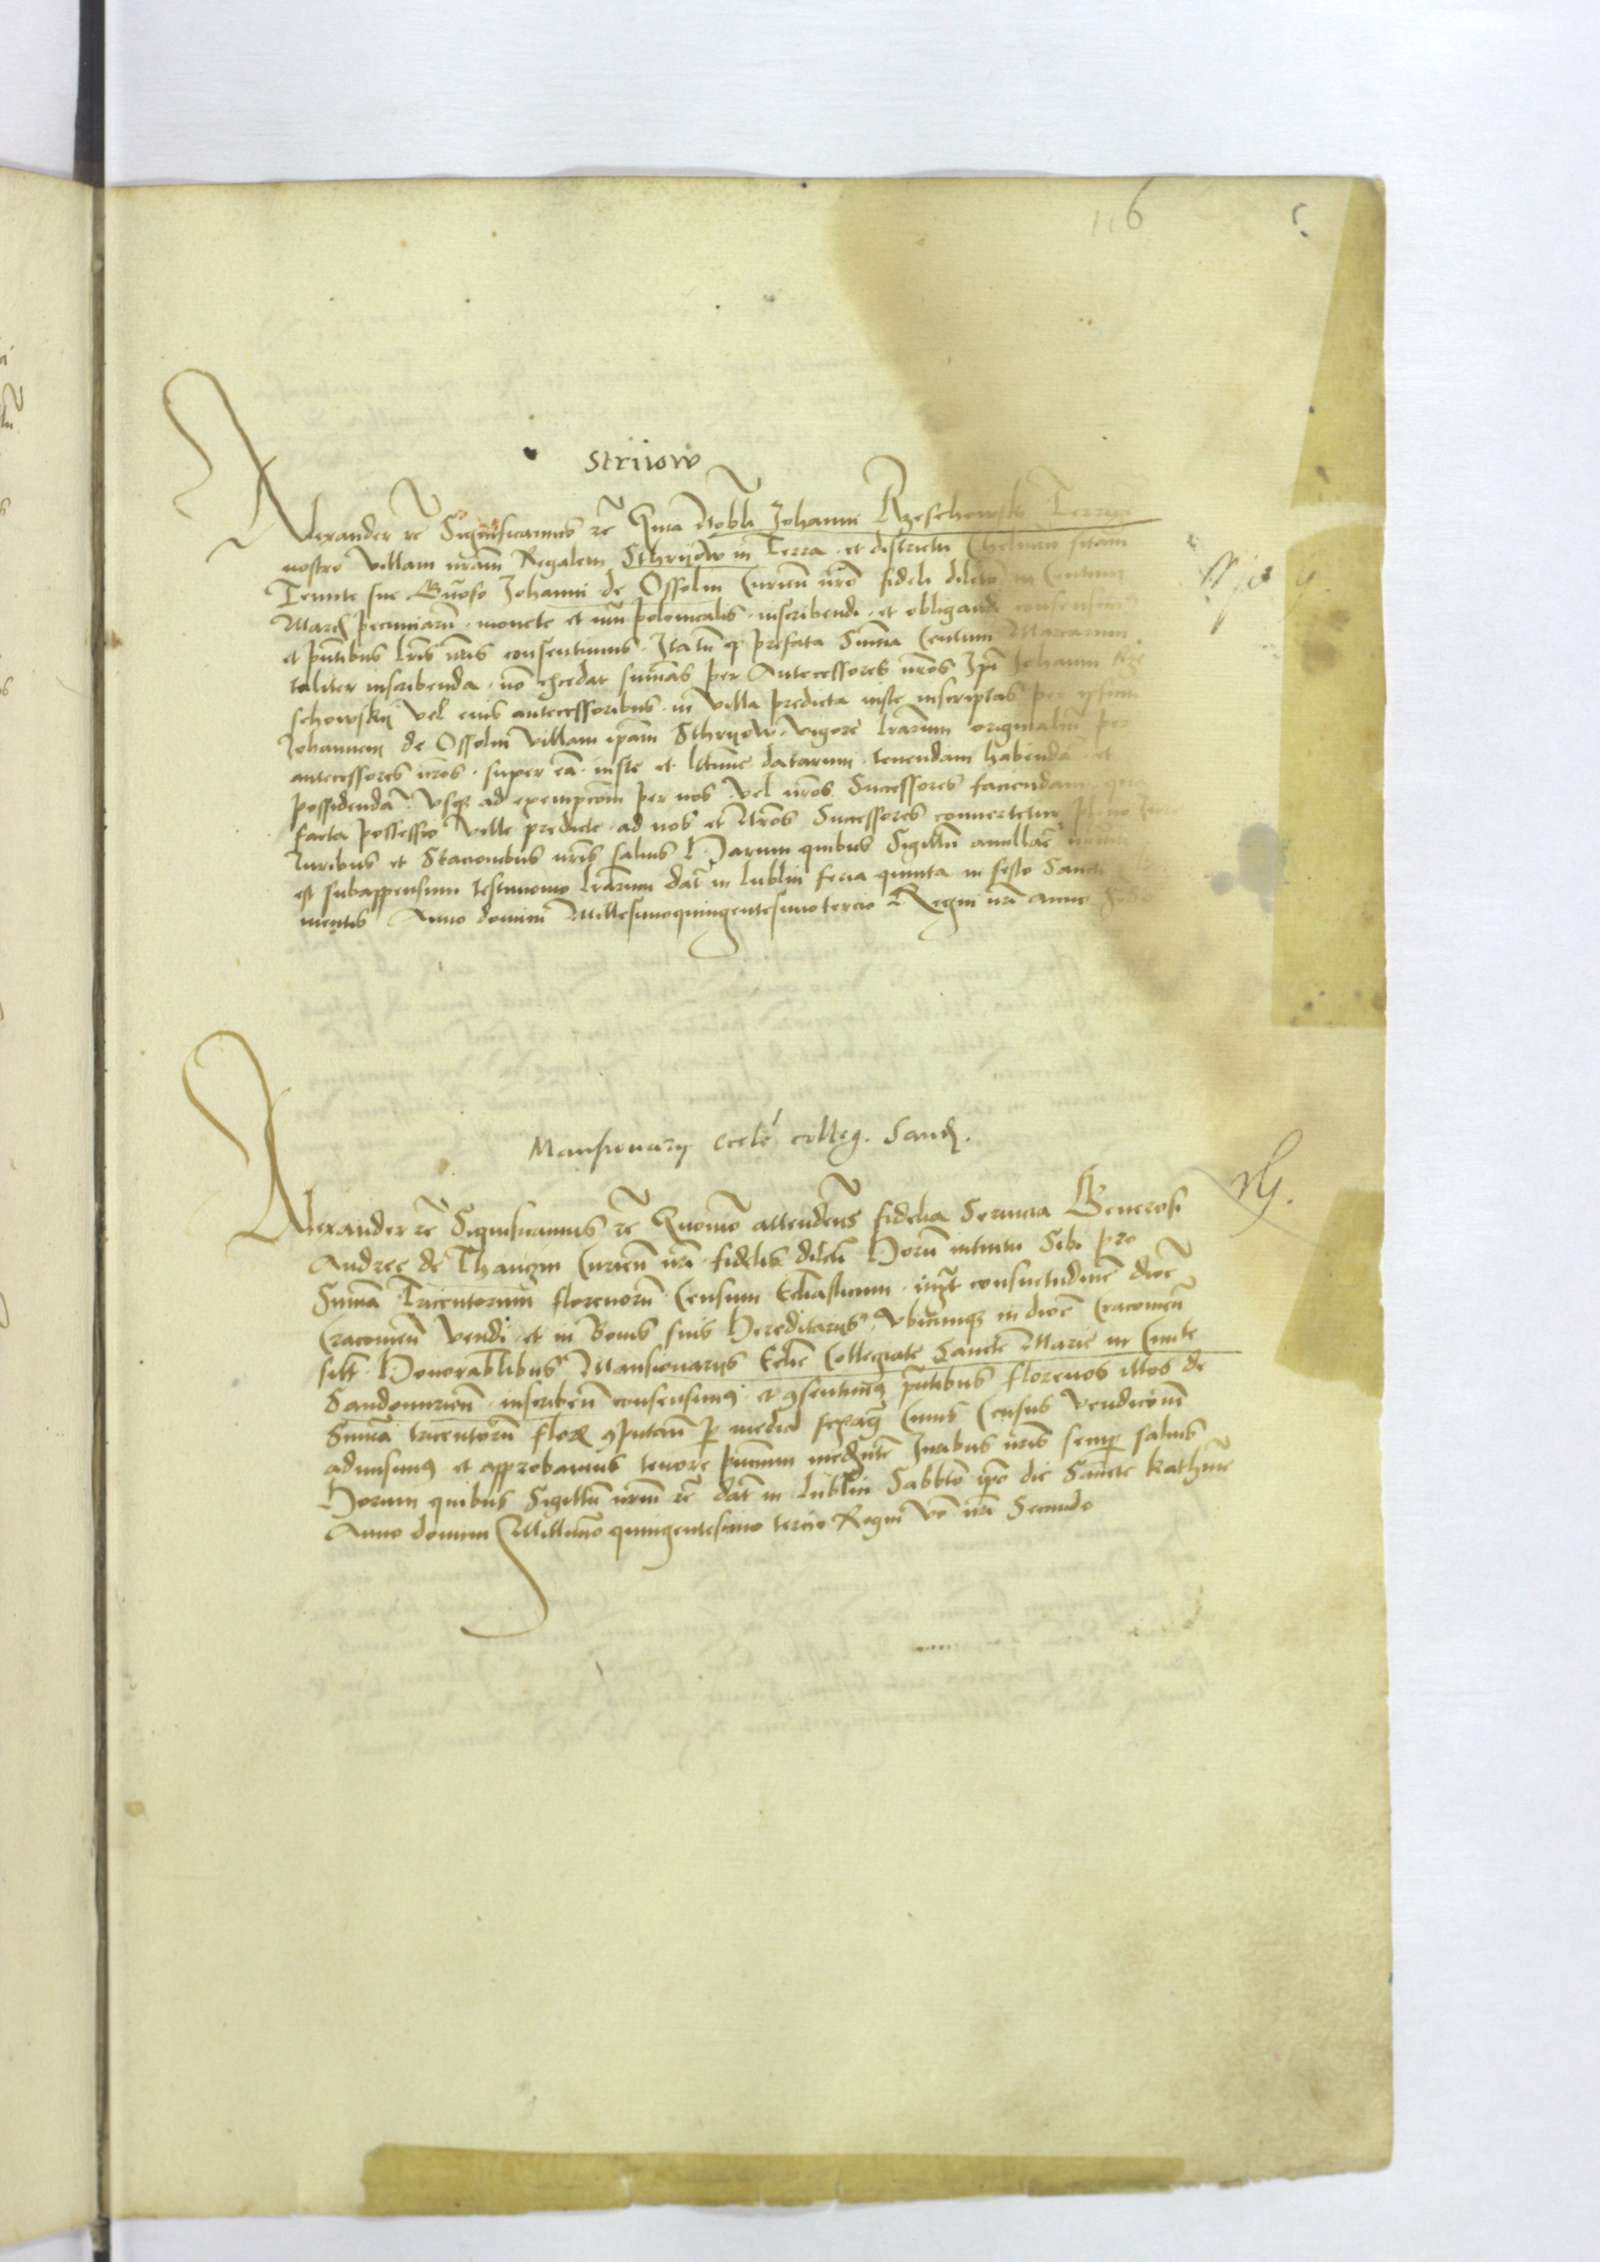 116
Strijow
Alexander rc̄ Significamus rc̄ Quia Nobli Johanni Rzeschowski
nostro villam nr̄am Regalem Sthrijow in Terra et districtu Chelmen sitam
Tenute sue Gn̄oso Johanni de Ossolin Curien̄ nr̄o fideli dilcto in Centum
Marcɉ pecuniarū monete et nūi polonicalis inscribendi et obligandi consensim
et pn̄tibus lr̄is nr̄is consentimus Itatn̄ q̄ prefata Sum̄a Centum Marcarum
taliter inscribenda nō excedat sum̄as per Antecessores nr̄os Ip̄i Johanni Rze
schowskij vel eius antecessoribus in villa predicta iuste inscriptas per
Johannem de Ossolin villam ip̄am Sthrijow vigore lr̄arum originaliū per
antecessores nr̄os super eā iuste et ltt̄ime datarum tenendam habendā et
possidendā Vsq̨ ad exempcōm per nos vel nr̄os Successores faciendam qua
facta possessio ville predicte ad nos et Nr̄os Successores conuertetur pleno Iure
Iuribus et Stacionibus nr̄is saluis Harum quibus Sigillū nr̄um
est subappensum testimonio lr̄arum dat̄ in lublin feria quinta in festo Sancti
mentis Anno domini Millesimoquingentesimotercio Regni nr̄i anno
Mansionarij eccle colleg. Sandɉ.
Alexander rc̄ Significamus rc̄ Quomō attenden̄s fidelia Seruicia Generosi
Andree de Thanczin Curien̄ nr̄i fidelis dilcti Horū intuitu Sibi pro
Sum̄a Tricentorum florenorū Censum Eccliasticum iuxt̄ consuetudinē dioc̄
Cracouien̄ vendi et in Bonis suis Hereditarijs vbicumq̨ in dioc̄ Cracouien̄
sitt Honorabilibus Mansionarijs Eccl̄ie Collegiate Sancte Marie in Ciuite
Sandomirien̄ inscriben̄ consensimꝰ et ꝯsentimꝰ pn̄tibus florenos illos de
Sum̄a tricentorū flor̄ ꝯputan̄ ꝑ mediā sexaḡ Cuius Census vendicōni
admisimꝰ et approbamus tenore pn̄cium mediante Iuribus nr̄is semꝑ saluis
Horum quibus Sigillū nr̄um rc̄ dat̄ in lublin Sabbto ip̄o die Sancte katherine
Anno domini Millimo quingentesimo tercio Regni vō nr̄i Secundo